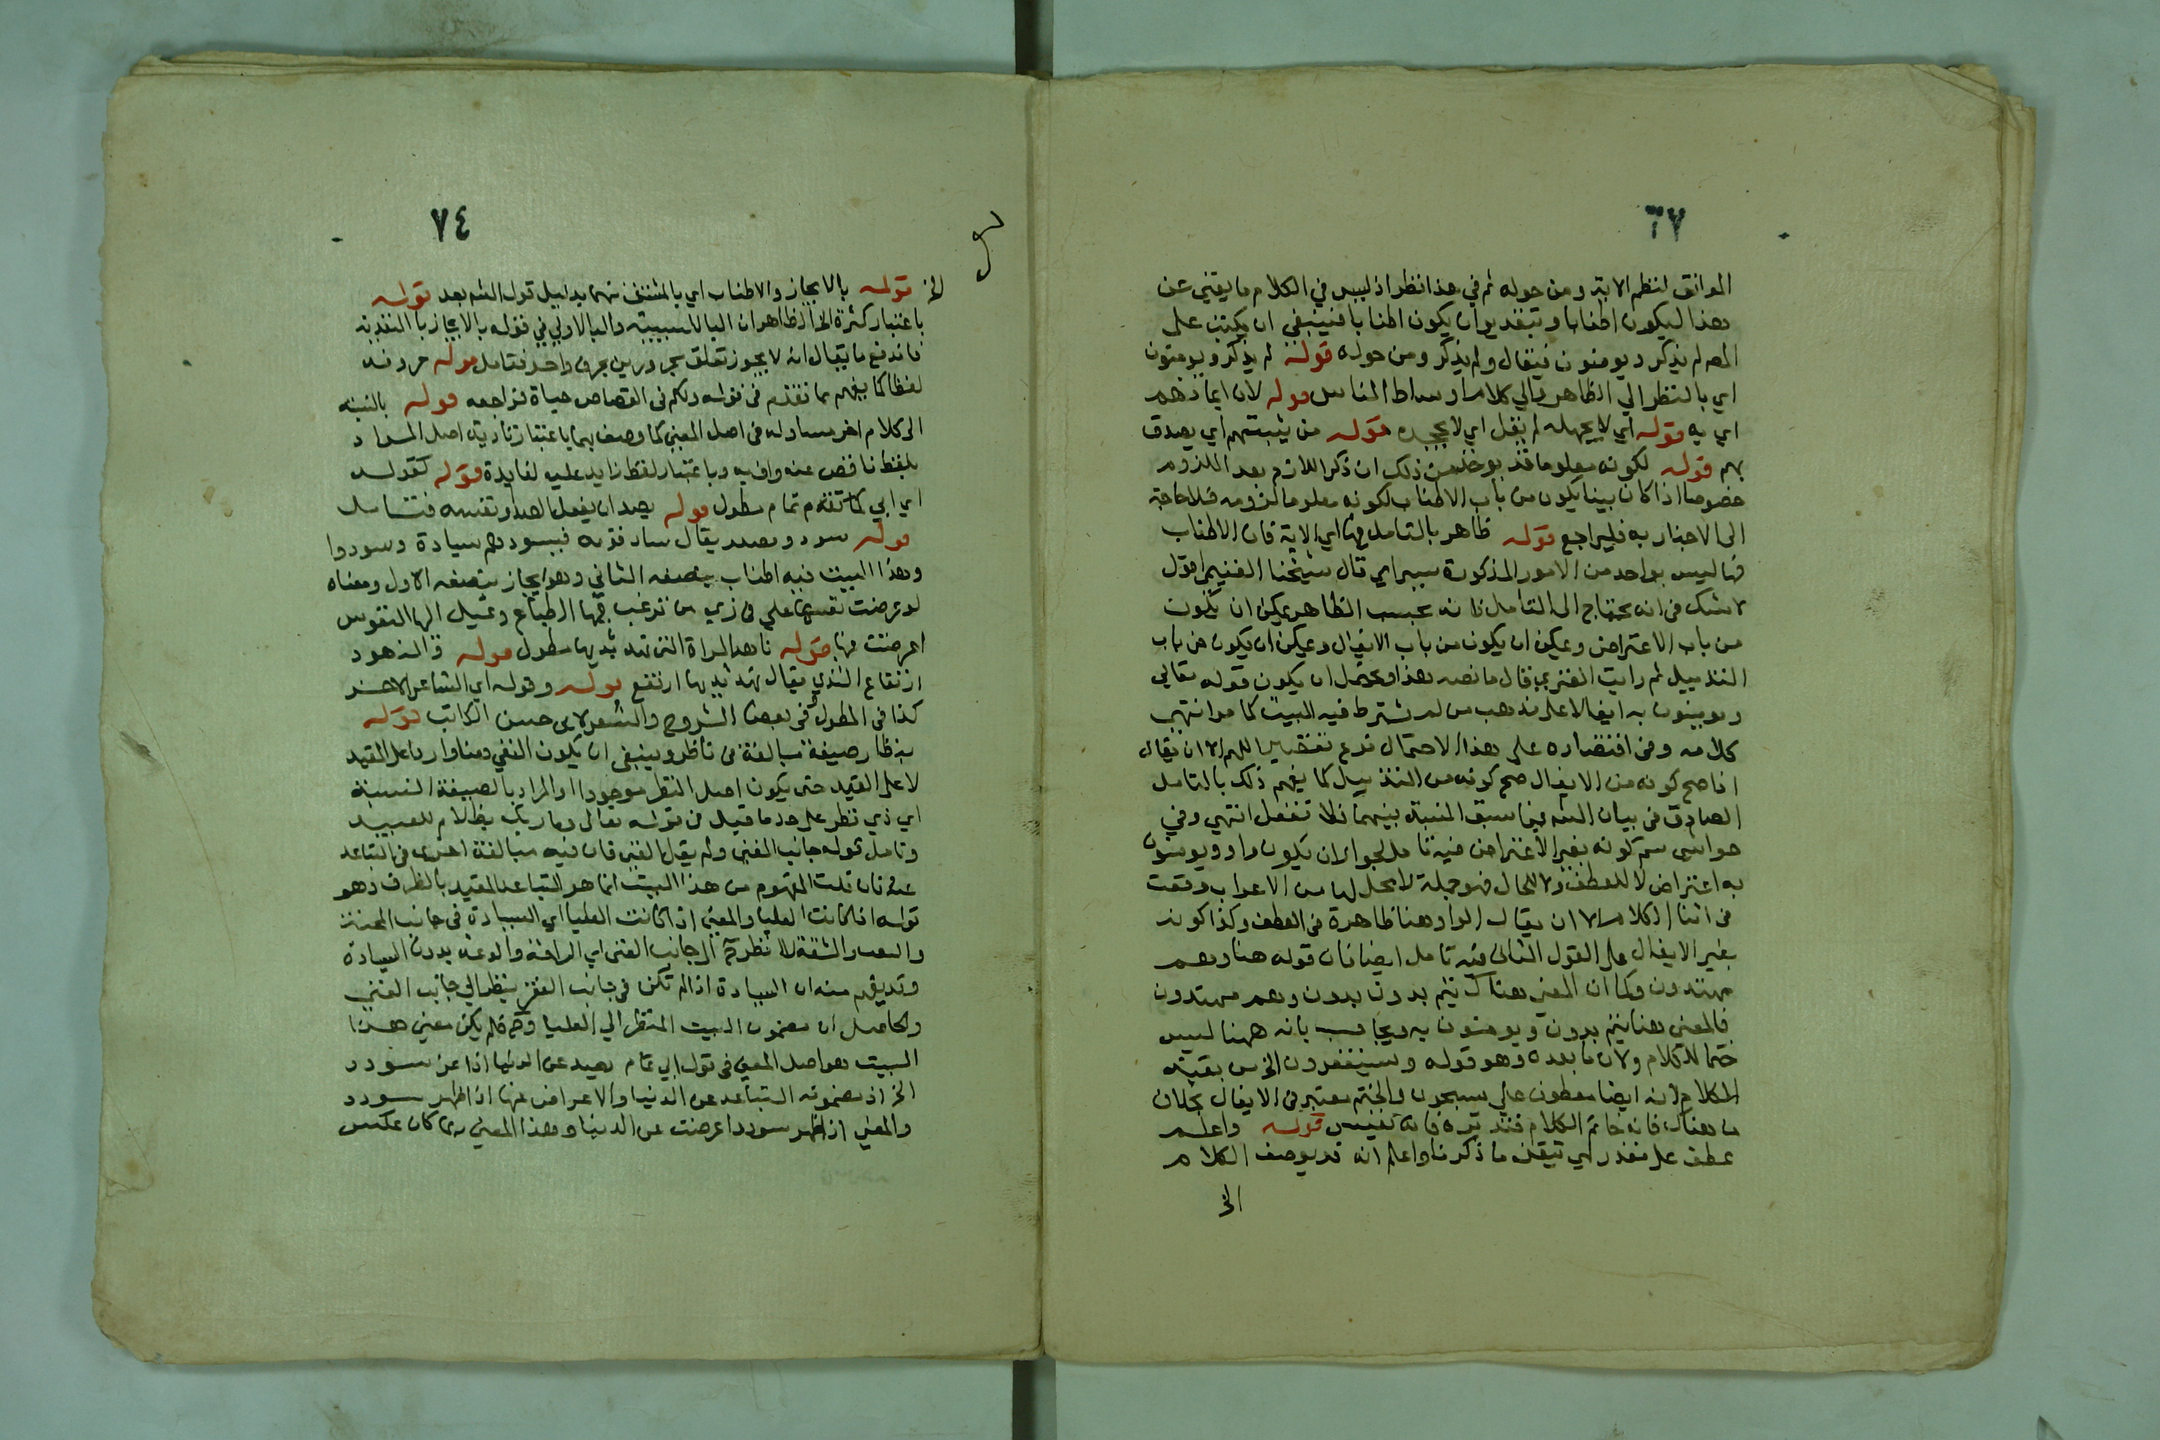 ٦٧
الموافق لنظم الاية ومن حوله ثم في هذا نظر اذ ليس في الكلام ما يغني عن
هذا ليكون اطنابا وبتقدير ان يكون اطنابا فينبغي ان يكتب على
المص لم يذكر ويومنون فيقال ولم يذكر ومن حوله قوله لم يذكر ويومنون
اي بالنظر الي الظاهر والي كلام اوساط الناس قوله لان ايمانهم
اي به قوله اي لا يجهله لم يقل اي لا يجحده قوله من يثبتهم اي يصدق
بهم قوله لكونه معلوما قد يوخذ من ذلك ان ذكر اللازم بعد الملزوم
خصوصا اذا كان بينا يكون من باب الاطناب لكونه معلوما لزومه فلا حاجة
الى الاخبار به فليراجع قوله ظاهر بالتامل فيها اي الاية فان الاطناب
فيها ليس بواحد من الامور المذكورة سيراي قال شيخنا الغنيمي اقول
لا شك في انه يحتاج الى التامل فانه بحسب الظاهر يمكن ان يكون
من باب الاعتراض ويمكن ان يكون من باب الايغال ويمكن ان يكون من باب
التذييل ثم رايت الفنري قال ما نصه هذا ويحتمل ان يكون قوله تعالى
ويومنون به ايغالا على مذهب من لم يشترط فيه البيت كما مر انتهي
كلامه وفي اقتصاره على هذا الاحتمال نوع تقصير اللهم الا ان يقال
اذا صح كونه من الايغال صح كونه من التذييل كما يفهم ذلك بالتامل
الصادق في بيان الشه فيما سبق النسبة بينهما فلا تغفل انتهي وفي
حواشي سم كونه بغير الاعتراض فيه تامل لجواز ان يكون واو ويومنون
به اعتراض لا للعطف ولا للحال فهو جملة لا محل لها من الاعراب وقعت
في اثنا الكلام الا ان يقال الواو هنا ظاهرة في العطف وكذا كونه
بغير الايغال على القول الثاني فيه تامل ايضا فان قوله هنا وهم
مهتدون وكما ان المعني هناك يتم بدون وهم مهتدون
فالمعني هنا يتم بدون ويومنون به ويجاب بانه ههنا ليس
ختما للكلام ولان ما بعده وهو قوله ويستغفرون الخ من بقية
الكلام لانه ايضا معطوف على يسبحون والختم معتبر في الايغال بخلاف
ما هناك فانه خاتم الكلام فتدبره فانه نفيس قوله واعلم
عطف على مقدر اي تيقن ما ذكرنا واعلم انه قد يوصف الكلام
الخ
٧٤
الخ قوله بالايجاز والاطناب اي بالمشتق منهما بدليل قول الشه بعد قوله
باعتبار كثرة الخ الظاهر ان البا للسببية والبا الاولي في قوله بالايجاز با التعدية
فاندفع ما يقال انه لا يجوز تعلق مجرورين بحرف واحد فتامل قوله حروفه
لفظا كما يفهم مما تقدم في قوله ولكم في القصاص حياة فراجعه قوله بالنسبة
الى كلام اخر مساو له في اصل المعني كما وصف بهما باعتبار تادية اصل المراد
بلفظ ناقص عنه واف به وباعتبار لفظ زايد عليه لفايدة قوله كقوله
اي ابي تمام مطول قوله يصد ان يفعل الصد ونفسه فتامل
قوله سودد مصدر يقال ساد قومه فيسودهم سيادة وسوددا
وهذا البيت فيه اطناب بنصفه الثاني وهو ايجاز بنصفه الاول ومعناه
لو عرضت نفسها علي في زي من ترغب فيها الطباع وتميل اليها النفوس
اعرضت عنها قوله ناهد المراة التي نهد ثديها مطول قوله والنهود
ارتفاع الثدي يقال نهد ثديها ارتفع قوله وقوله اي الشاعر الاخر
كذا في المطول وفي بعض الشروح والشعر لابي حسن الكاتب قوله
بنظار صيغة مبالغة من ناظر وينبغي ان يكون النفي هنا واردا على المقيد
لا على القيد حتى يكون اصل النظر موجودا او المراد بالصيغة النسبة
اي ذي نظر على حد ما قيل في قوله تعالى وما ربك بظلام للعبيد
وتامل قوله جانب الغني ولم يقل الغني فان فيه مبالغة اخرى في التباعد
عنه فان قلت المفهوم من هذا البيت انما هو التباعد المقيد بالظرف وهو
قوله اذا كانت العليا والمعني اذا كانت العليا اي السيادة في جانب المحنة
والتعب والمشقة لا انظر الى جانب الغني اي الرافة والدعة بدون السيادة
وقد يفهم منه ان السيادة اذا لم تكن في جانب الفقر ينظر الي جانب الغني
والحاصل ان مضمون البيت النظر الي العليا فلم يكن معني هذا
البيت هو اصل المعني في قول ابي تمام يصد عن الدنيا اذا عن سودد
الخ اذ مضمونه التباعد عن الدنيا والاعراض عنها اذا ظهر سودد
والمعني اذا ظهر سودد اعرضت عن الدنيا وهذا المعني ربما كان عكس